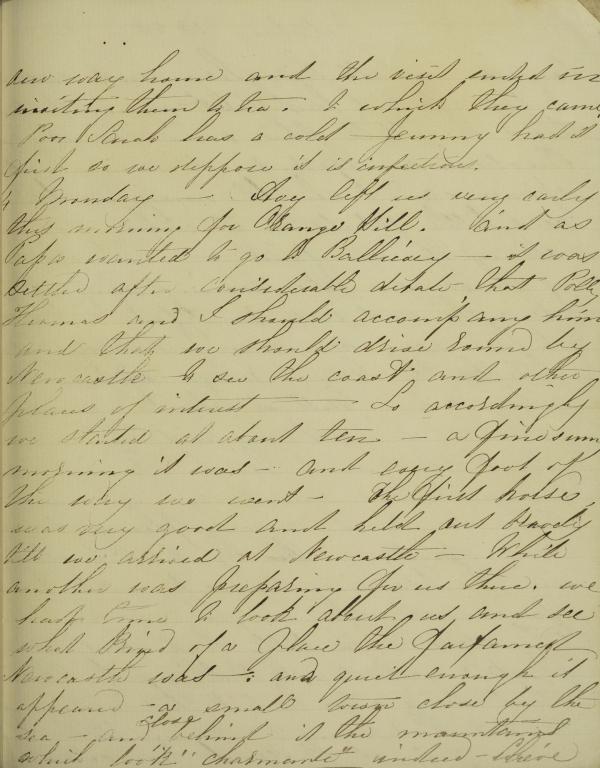 our way home and the visit ended in
inviting them to tea. to which they came
Poor Sarah has a cold - Jemmy had it
first so we suppose it is infectious.
Monday - They left us very early
this morning for Orange Hill. and as
Papa wanted to go to - it was
settled after considerable debate that Polly
Thomas and I should accompany him
and that we should drive round by
Newcastle to see the coast and other
places of interest - So accordingly
we started at about ten - a fine sunny
morning it was - and every foot of
the way we went - the first horse
was very good and held out bravely
till we arrived at Newcastle - While
another was preparing for us there. we
had time to look about us and see
what kind of a place the far famed
Newcastle was - and quiet enough it
appeared - a small town close by the
sea - and close behind it the mountains
which look "charmante" indeed -